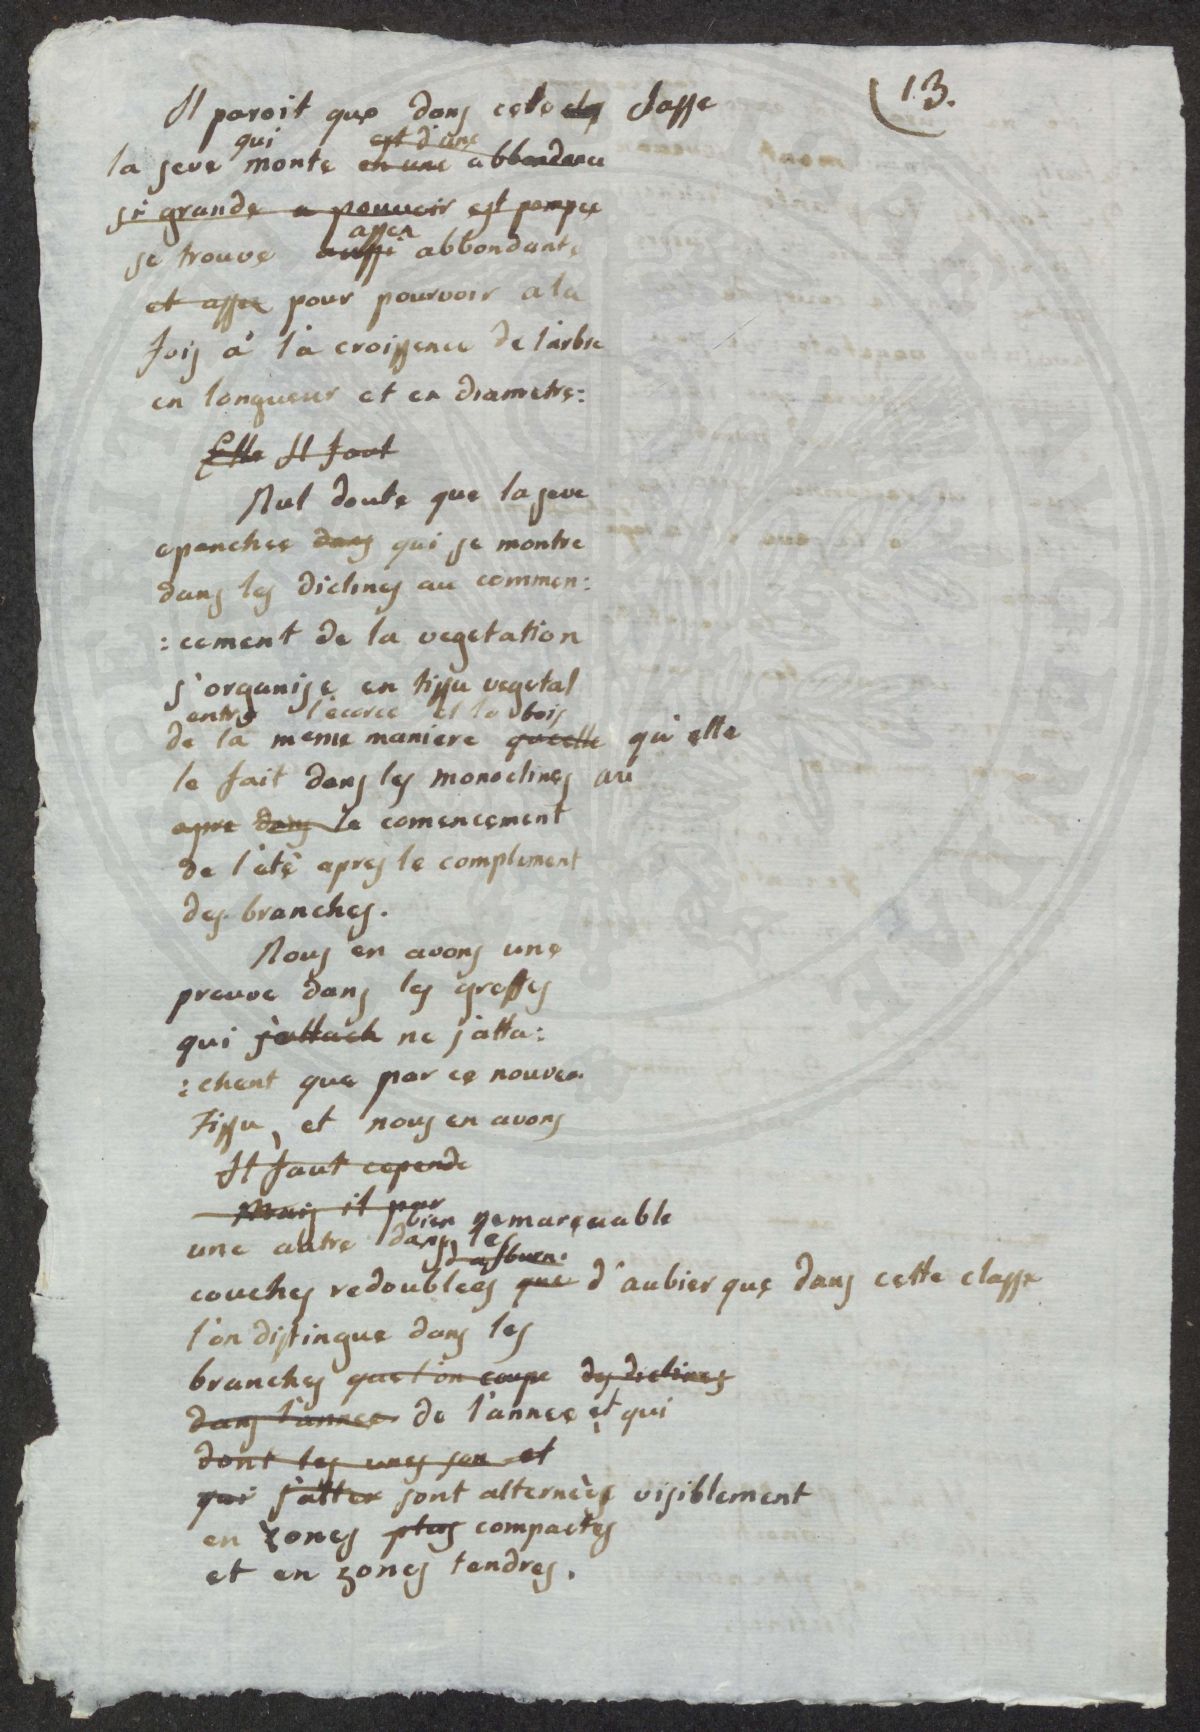 13.
Il paroit que dans cete cla classe
qui est d'une
la seve monte en une abbondance
si grande a pouvoir est pompee
assez
se trouve aussi abbondante
et assez pour pourvoir a la
fois a' la croissence de l'arbre
en longueur et en diametre:
Elle Il faut
Nul doute que la seve
epenchee dans qui se montre
dans les diclines au commen:
:cement de la vegetation
s'organise en tissu vegetal
entre l'ecorce et le bois
de la meme maniere quecelle qu'elle
le fait dans les monoclines au
apre dans le comencement
de l'eté apres le complement
des branches.
Nous en avons une
preuve dans les greffes
qui s'attach ne s'atta:
:chent que par ce nouvea
Tissu, et nous en avons
Il faut cepende
Mais il par
bien remarquable
une autre dans les
d'alburn:
couches redoublees que d'aubier que dans cette classe
l'on distingue dans les
branches que l'on coupe des diclines
dans l'annee de l'annee et qui
dont les unes son et
qui s'alter sont alternées visiblement
en zones plus compactes
et en zones tendres.